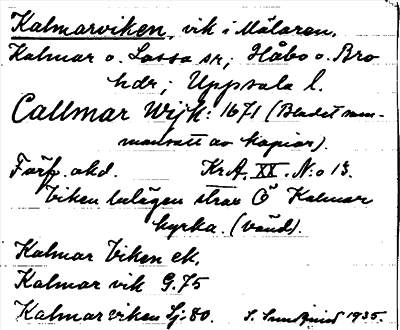 Kalmarviken, vik i Mälaren,
Kalmar o. Lossa sr; Håbo o. Bro
hdr; Uppsala l.
Callmar Wijk: 1671 (Bladet sam-
mansatt av kopior).
Förf. okd. KrA. XX. N:o 13.
Viken belägen strax Ö Kalmar
kyrka. (vänd).
Kalmar Viken ek.
Kalmar vik G.75
Kalmarviken Sj. 80. S. Sundquist 1935.